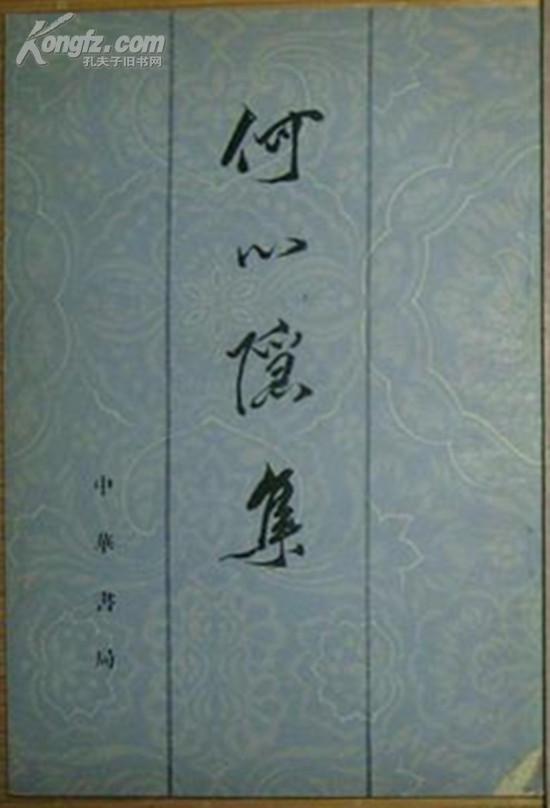 Kongfz.com
孔夫子旧书网
何心隱集
中華書局